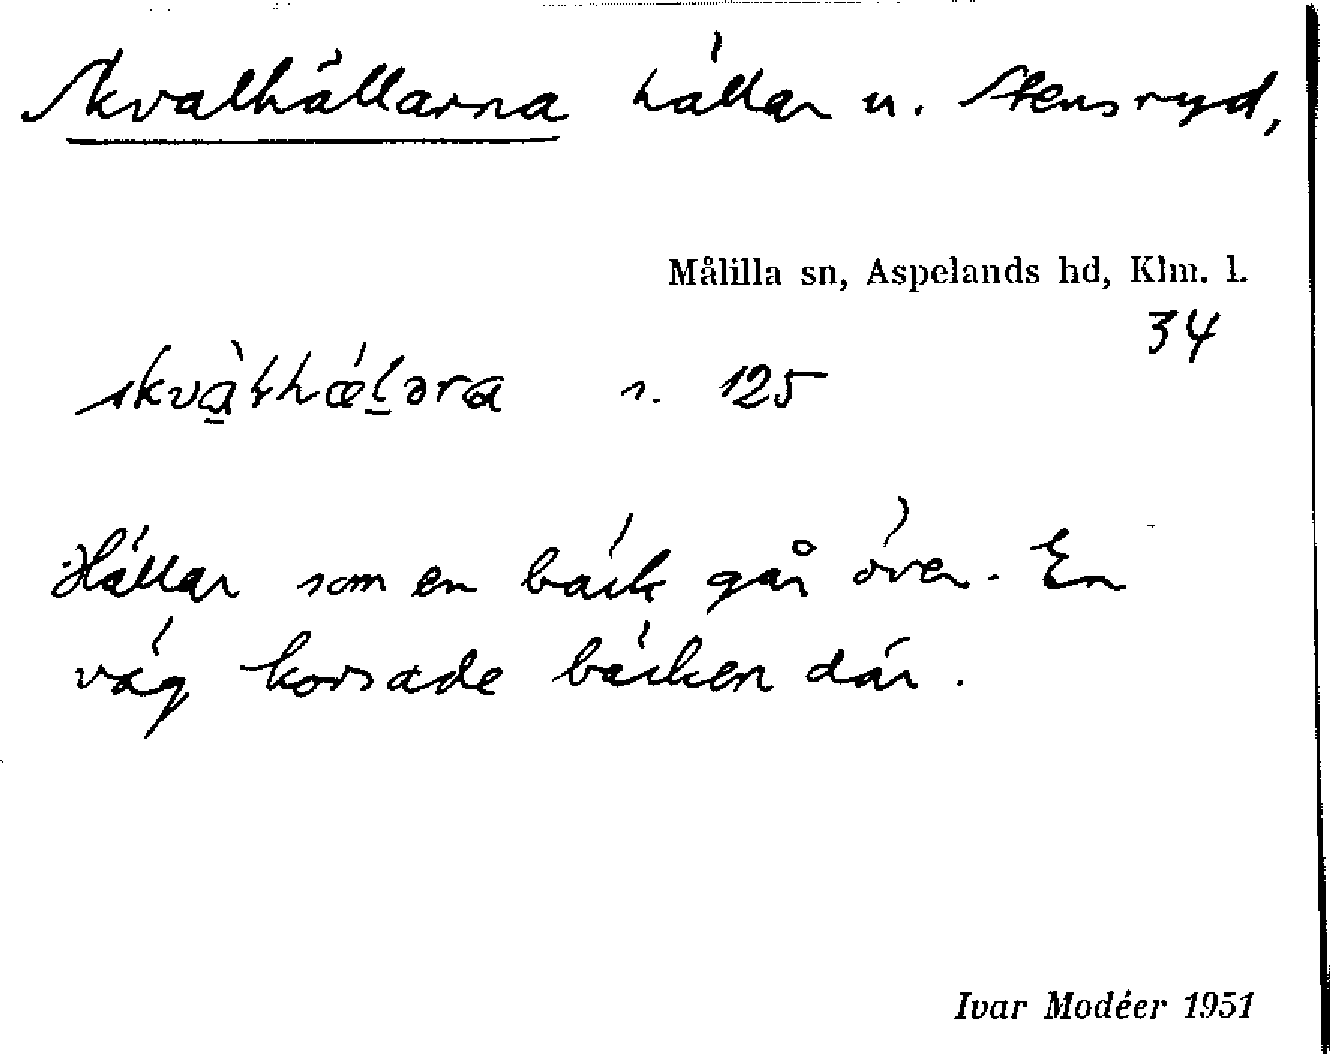 Skvalhällarna hällar u. Stensryd,
Målilla sn, Aspelands hd, Klm. l.
34
s. 125
Hällar som en bäck går över. En
väg korsade bäcken där.
Ivar Modéer 1951